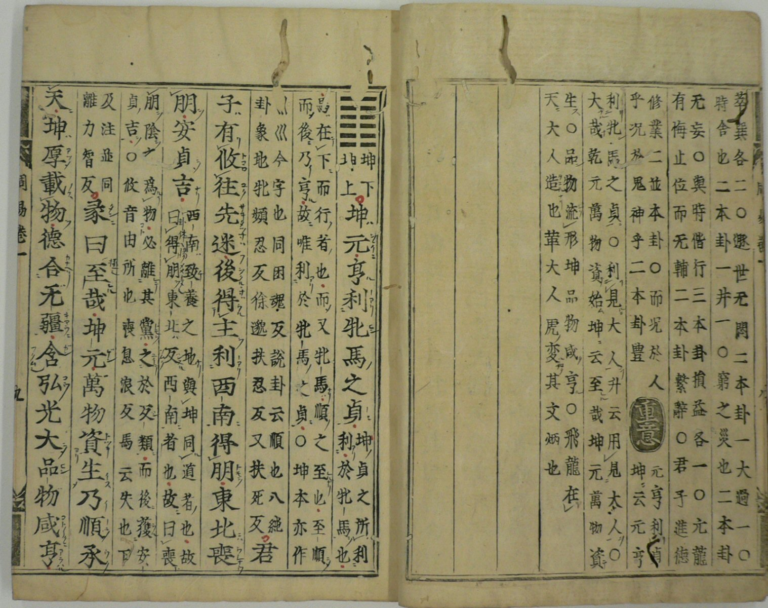 萃巽各二○遯世无悶二本卦一大過一○
時舍也二本卦一井一○窮之災也二本卦
无妄○與時偕行三本卦損益各一○亢龍
有悔止位而无輔二本卦繫辭○君子進德
修業二並本卦○而況於人
乎況於鬼神乎二本卦豐
重意
元亨利貞
坤云元亨
利牝馬之貞○利見大人升云用見大人○
大哉乾元萬物資始坤云至哉坤元萬物資
生○品物流形坤品物咸亨○飛龍在
天大人造也革大人虎變其文炳也
䷁
坤下
坤上
坤元亨利牝馬之貞
坤貞之所利
利於牝馬也
馬在下而行者也而又牝馬順之至也至順
而後乃亨故唯利於牝馬之貞○坤本亦作
巛巛今字也同困魂反說卦云順也八純
卦象地牝頻忍反徐邈扶忍反又扶死反
君
子有攸往先迷後得主利西南得朋東北喪
朋安貞吉
西南致養之地與坤同道者也故
曰得朋東北反西南者也故曰喪
朋陰之為物必離其黨之於反類而後獲安
貞吉○攸音由所也喪息浪反馬云失也下
及注並同
離力智反
彖曰至哉坤元萬物資生乃順承
天坤厚載物德合无疆含弘光大品物咸亨
周易卷一
九